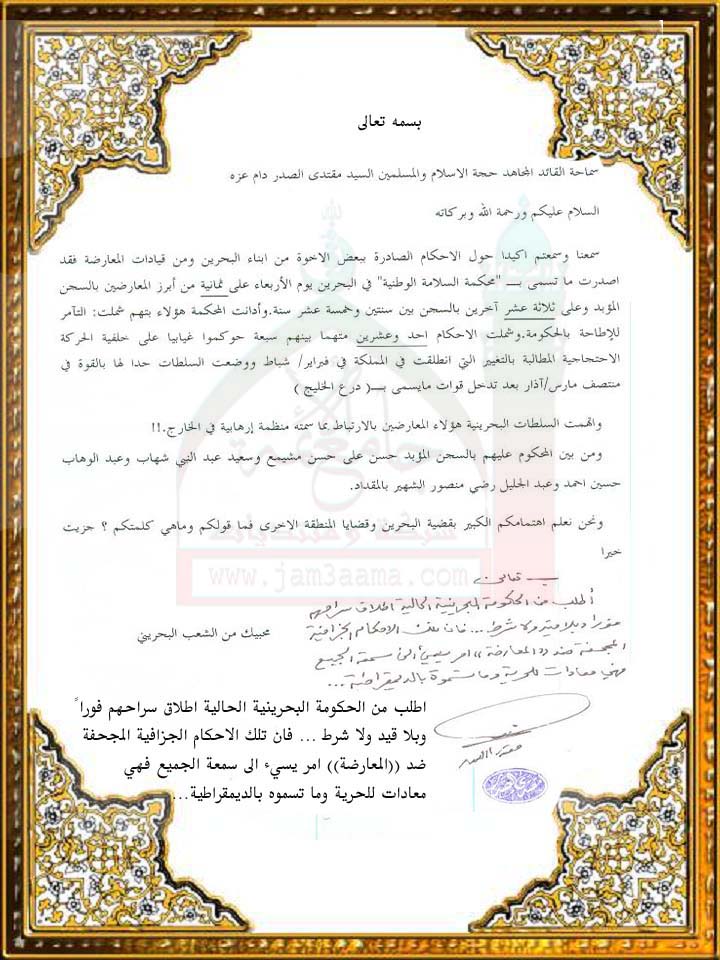 بسمه تعالى
سماحة القائد المجاهد حجة الاسلام والمسلمين السيد مقتدى الصدر دام عزه
السلام عليكم ورحمة الله وبركاته
سمعنا وسمعتم اكيدا حول الاحكام الصادرة ببعض الاخوة من ابناء البحرين ومن قيادات المعارضة فقد
اصدرت ما تسمى بـــ "محكمة السلامة الوطنية" في البحرين يوم الأربعاء على ثمانية من أبرز المعارضين بالسجن
المؤبد وعلى ثلاثة عشر آخرين بالسجن بين سنتين وخمسة عشر سنة.وأدانت المحكمة هؤلاء بتهم شملت: التآمر
للإطاحة بالحكومة.وشملت الاحكام احد وعشرين متهما بينهم سبعة حوكموا غيابيا على خلفية الحركة
الاحتجاجية المطالبة بالتغيير التي انطلقت في المملكة في فبراير/ شباط ووضعت السلطات حدا لها بالقوة في
منتصف مارس/آذار بعد تدخل قوات مايسمى بـــ( درع الخليج )
واتهمت السلطات البحرينية هؤلاء المعارضين بالارتباط بما سمته منظمة إرهابية في الخارج.!!
ومن بين المحكوم عليهم بالسجن المؤبد حسن على حسن مشيمع وسعيد عبد النبي شهاب وعبد الوهاب
حسين احمد وعبد الجليل رضي منصور الشهير بالمقداد.
ونحن نعلم اهتمامكم الكبير بقضية البحرين وقضايا المنطقة الاخرى فما قولكم وماهي كلمتكم ؟ جزيت
خيرا
www.jam3aama.com
تعالى
أطلب من الحكومة البحرينية الحالية اطلاق سراحهم
فورا وبلا قيد ولا شرط ... فان تلك الاحكام الجزافية
محبيك من الشعب البحريني
المجحفة ضد ((المعارضة)) امر يسيئ الى سمعة الجميع
فهي معادات للحرية وما تسموه بالديمقراطية ...
اطلب من الحكومة البحرينية الحالية اطلاق سراحهم فوراً
وبلا قيد ولا شرط ... فان تلك الاحكام الجزافية المجحفة
ضد ((المعارضة)) امر يسيء الى سمعة الجميع فهي
معادات للحرية وما تسموه بالديمقراطية...
مقتدى الصدر